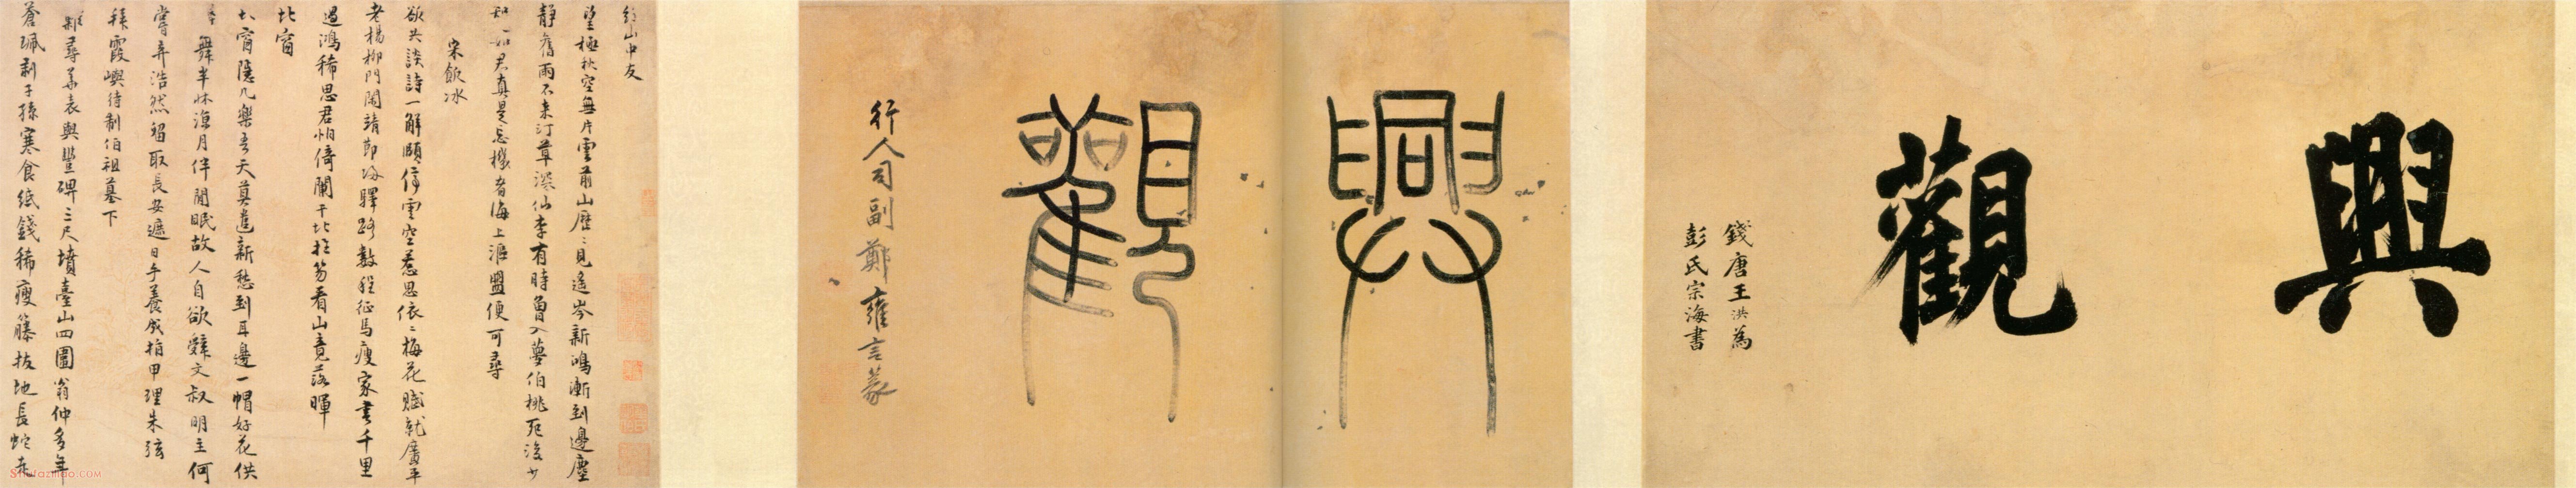 興觀
錢唐王洪為
彭氏宗海書
興觀
行人司副鄭雍言篆
山中友
望極秋空無片雲前山歷〻見遙岑新鴻漸到邊塵
靜舊雨不來汀草深仙李有時曾入夢伯桃死後少
知如君真是忘機者海上漚盟便可尋
宋飯冰
欲共談詩一解頤停雲空惹思依〻梅花賦就廣平
老楊柳門閑靖節歸驛路數程征馬瘦家書千里
過鴻稀思君怕倚闌干北拄笏看山竟落暉
北窗
北窗隱几樂吾天莫遣新愁到耳邊一帽好花供
舞半牀涼月伴閒眠故人自欲辭文叔明主何
嘗弄浩然留取長安遮日手養成指甲理朱弦
孫霞嶼待制伯祖墓下
難尋華表與豐碑三尺墳臺山四圍翁仲多年
蒼珮剥子孫寒食紙錢稀瘦藤拔地長蛇走
Shufazidao.com